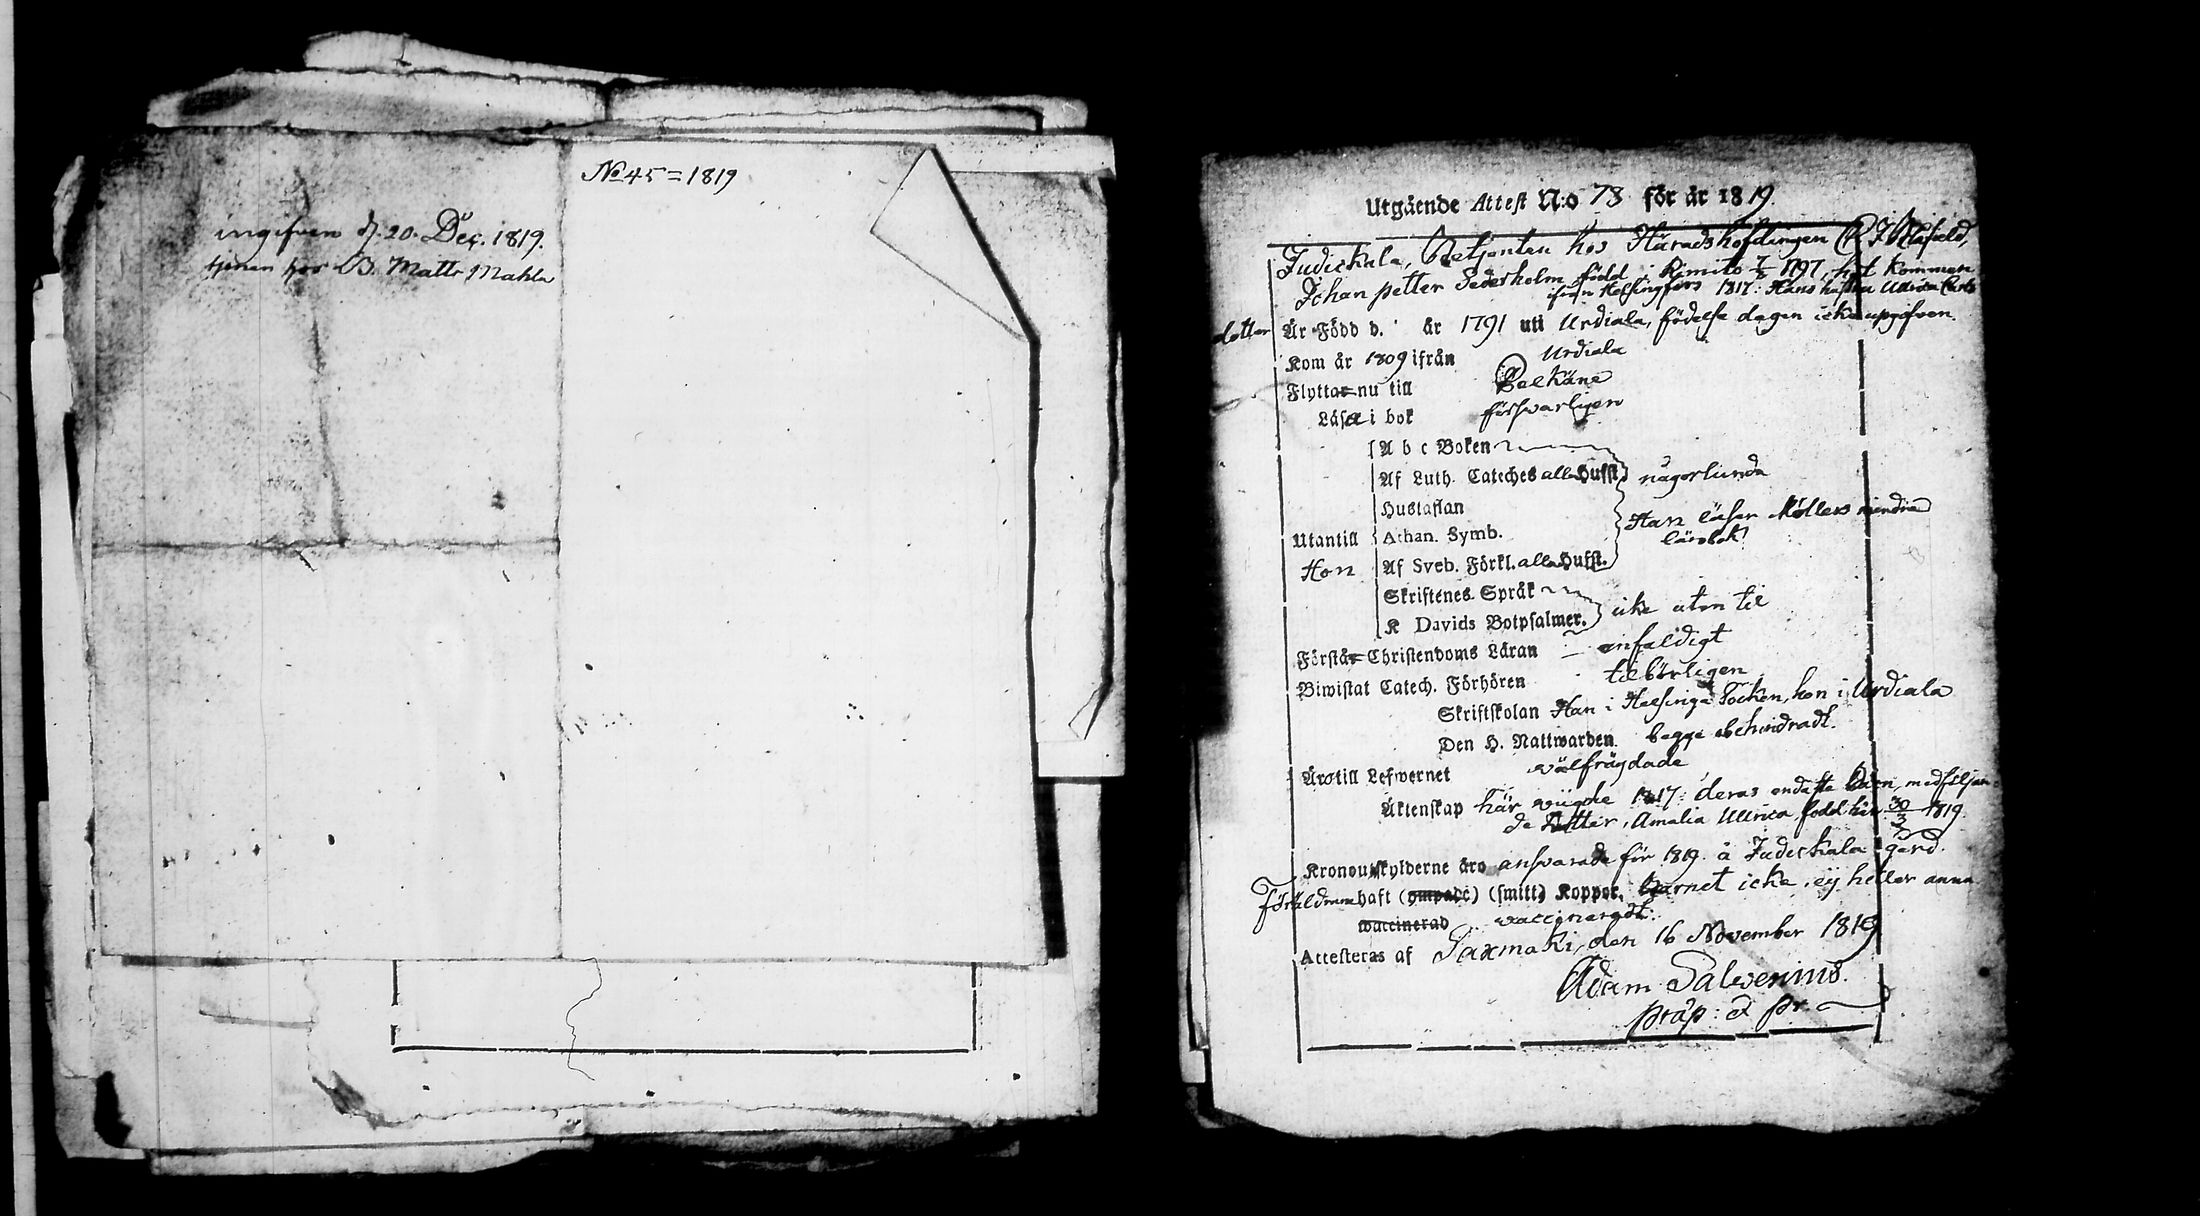 No 45 = 1819
ingifven d. 20. Dec. 1819.
tjenar hos B. Matts Mahla
Utgående Attest N:o 73 för år 1819.
Judickala, Betjenten hos Häradshöfdingen
Johan petter Sederholm född i Rimito 7/8 1797, hit kommen
ifrån Helsingfors 1817: Hans hustru Ullrica Carls
dotter Är Född d. år 1791 uti Urdiala, födelse dagen icke upgifven.
Kom år 1809 ifrån Urdiala
Flytta nu till Pelkäne
Läsa i bok försvarligen
A b c Boken
Af Luth. Cateches alla Hufst. någorlunda
Hustaflan
Utantill Athan. Symb. Han läser Möllers mindre
lärobok
Hon Af Sveb. Förkl. alla Hufst.
Skriftenes Språk
K Davids Botpsalmer. icke utan til
Förstår Christendoms Läran enfaldigt
Biwistat Catech. Förhören tilbörligen
Skriftskolan Han i Helsinge Socken, hon i Urdiala
Den H. Nattwarden begge obehindradt.
Äro till Lefwernet wälfrägdade
Äktenskap här wigde 1817: deras endaste barn, medföljan-
de dotter, Amalia Ullrica född här 30/3 1819.
Kronoutskylderne äro ansvarade för 1819. å Judickala gård.
Föräldrarna haft (ympade) (smitt) Koppor, barnet icke, ej heller ännu
waccinerad waccineradt.
Attesteras af Saxmaki, den 16 November 1819
Adam Salvenius.
præp: & pr.